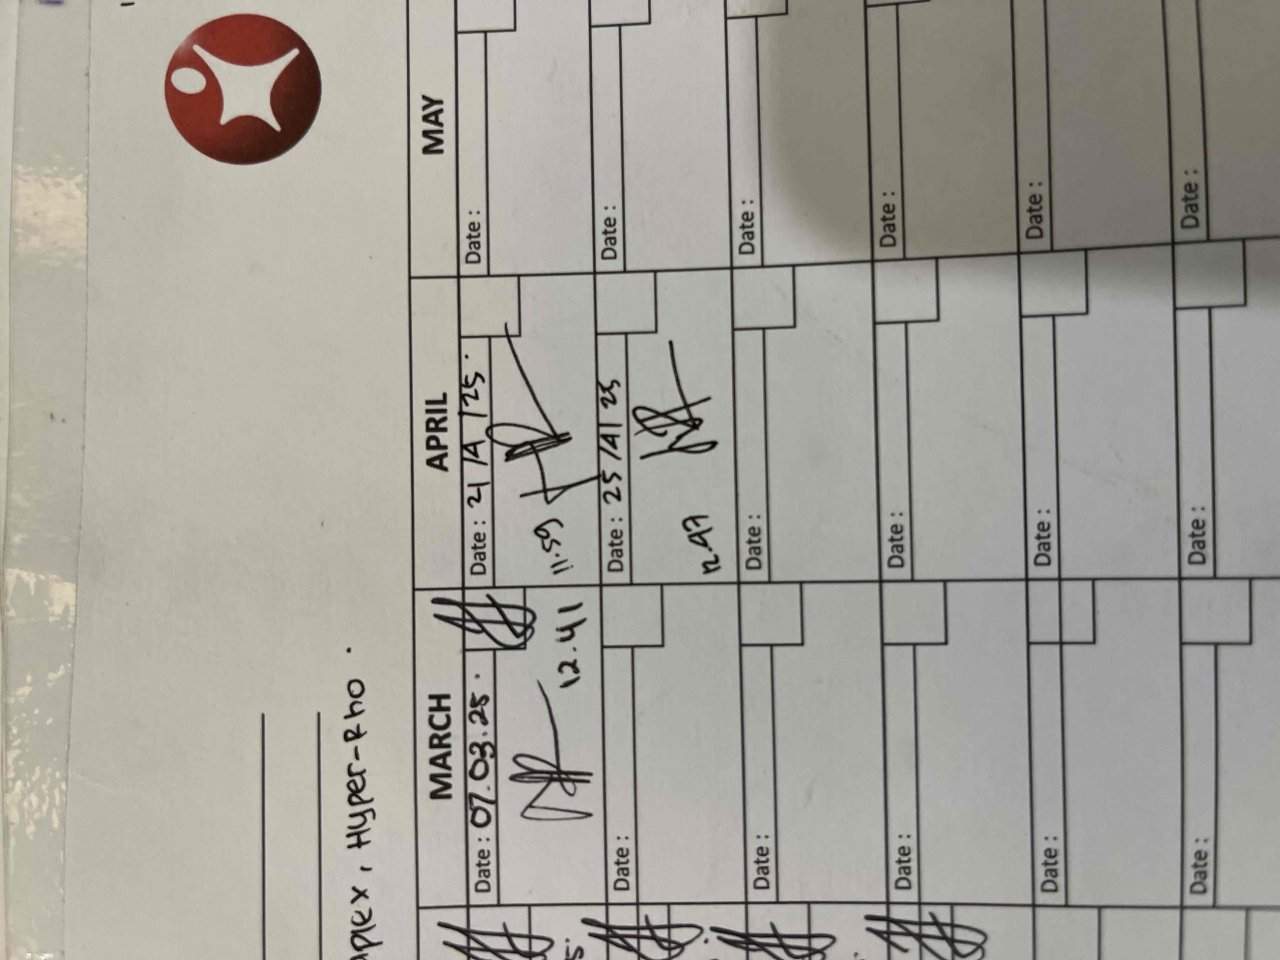 mplex , Hyper-Rho .
MARCH APRIL MAY
Date : 07.03.25. Date : 21/4/25. Date :
12.41 11.59
Date : Date : 25/4/25 Date :
12.47
Date : Date : Date :
Date : Date : Date :
Date : Date : Date :
Date : Date : Date :